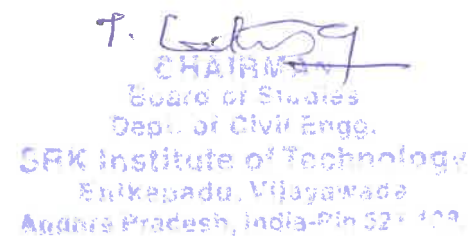 T.
CHAIRMAN
Board of Studies
Dept. of Civil Engg.
SRK Institute of Technology
Enikepadu, Vijayawada
Andhra Pradesh, India-Pin 521 108